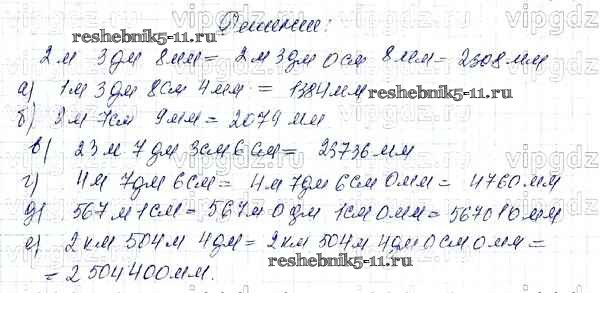 Решение:
2 м 3 дм 8 мм = 2 м 3 дм 0 см 8 мм = 2308 мм
а) 1 м 3 дм 8 см 4 мм = 1384 мм
б) 2 м 7 см 9 мм = 2079 мм
в) 23 м 7 дм 3 см 6 см = 23736 мм
г) 4 м 7 дм 6 см = 4 м 7 дм 6 см 0 мм = 4760 мм
д) 567 м 1 см = 567 м 0 дм 1 см 0 мм = 567010 мм
е) 2 км 504 м 4 дм = 2 км 504 м 4 дм 0 см 0 мм =
= 2 504 400 мм.
reshebnik5-11.ru
reshebnik5-11.ru
reshebnik5-11.ru
vipgdz
vipgdz
vipgdz
vipgdz